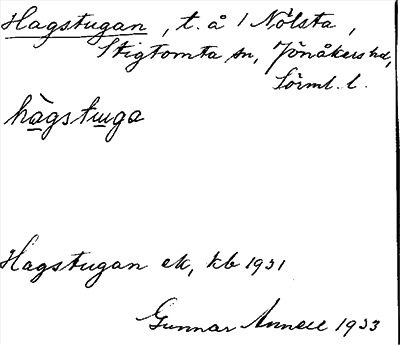 Hagstugan, t. å 1 Nölsta,
Stigtomta sn, Jönåkers hd,
Sörml. l.
hàgstuga
Hagstugan ek, kb 1931
Gunnar Annell 1933